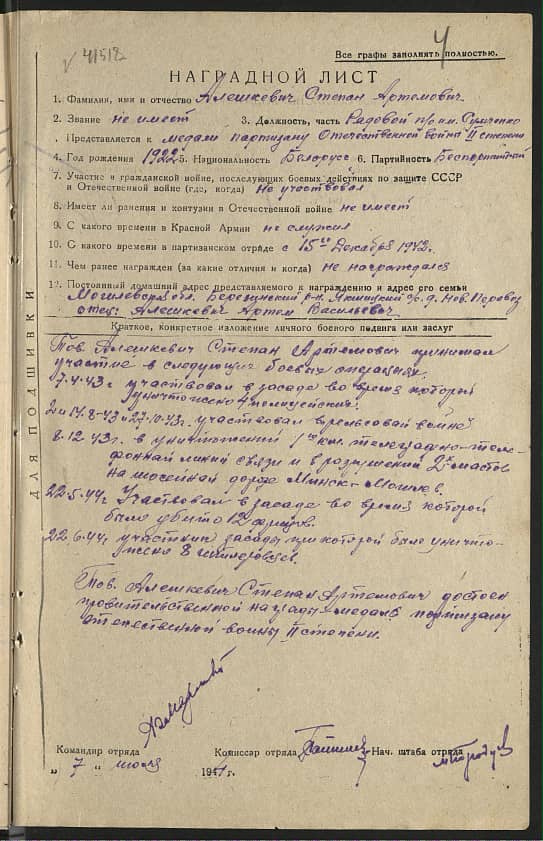 √ 41518
4
Все графы заполнять полностью.
НАГРАДНОЙ ЛИСТ
1. Фамилия, имя и отчество Алешкевич Степан Артемович
2. Звание не имеет 3. Должность, часть Рядовой п/о им.
Представляется к медали партизану Отечественной войны II степени
4. Год рождения 1922 5. Национальность Белорусс 6. Партийность Беспартийный
7. Участие в гражданской войне, последующих боевых действиях по защите СССР
и Отечественной войне (где, когда) Не участвовал
8. Имеет ли ранения и контузии в Отечественной войне не имеет
9. С какого времени в Красной Армии не служил
10. С какого времени в партизанском отряде с 15го Декабря 1942г.
11. Чем ранее награжден (за какие отличия и когда) не награждался
12. Постоянный домашний адрес представляемого к награждению и адрес его семьи
Могилевская обл. Березинский р-н Якшицкий с/с д. Нов. Перевоз
отец: Алешкевич Артем Васильевич
Краткое, конкретное изложение личного боевого подвига или заслуг
Тов. Алешкевич Степан Артемович принимал
участие в следующих боевых операциях:
7.4.43г участвовал в засаде во время которой
уничтожено 4 полицейских.
участвовал в рельсовой войне
8.12.43г. в уничтожении 1го км. телеграфно-теле-
фонной линии связи и в разрушении 2х мостов
на шоссейной дороге Минск-Могилев.
22.5.44г Участвовал в засаде во время которой
было убито 12 фрицов.
22.6.44г. участник засады при которой было уничто-
жено 8 гитлеровцев.
Тов. Алешкевич Степан Артемович достоен
правительственной награды - медаль партизану
отечественной войны II степени.
ДЛЯ ПОДШИВКИ
Командир отряда Комиссар отряда Нач. штаба отряда
„ 7 „ июля 1944 г.